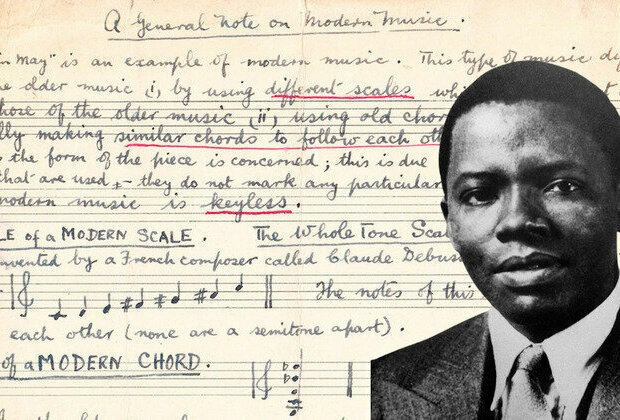 A General Note on Modern Music.
in May" is an example of modern music. This type of music
older music (i) by using different scales
those of the older music (ii) using old
making similar chords to follow each
the form of the piece is concerned; this is due
that are used — they do not mark any particular
modern music is keyless.
of a MODERN SCALE. The Whole Tone
invented by a French composer called Claude
The notes of this
each other (none are a semitone apart).
of a MODERN CHORD.